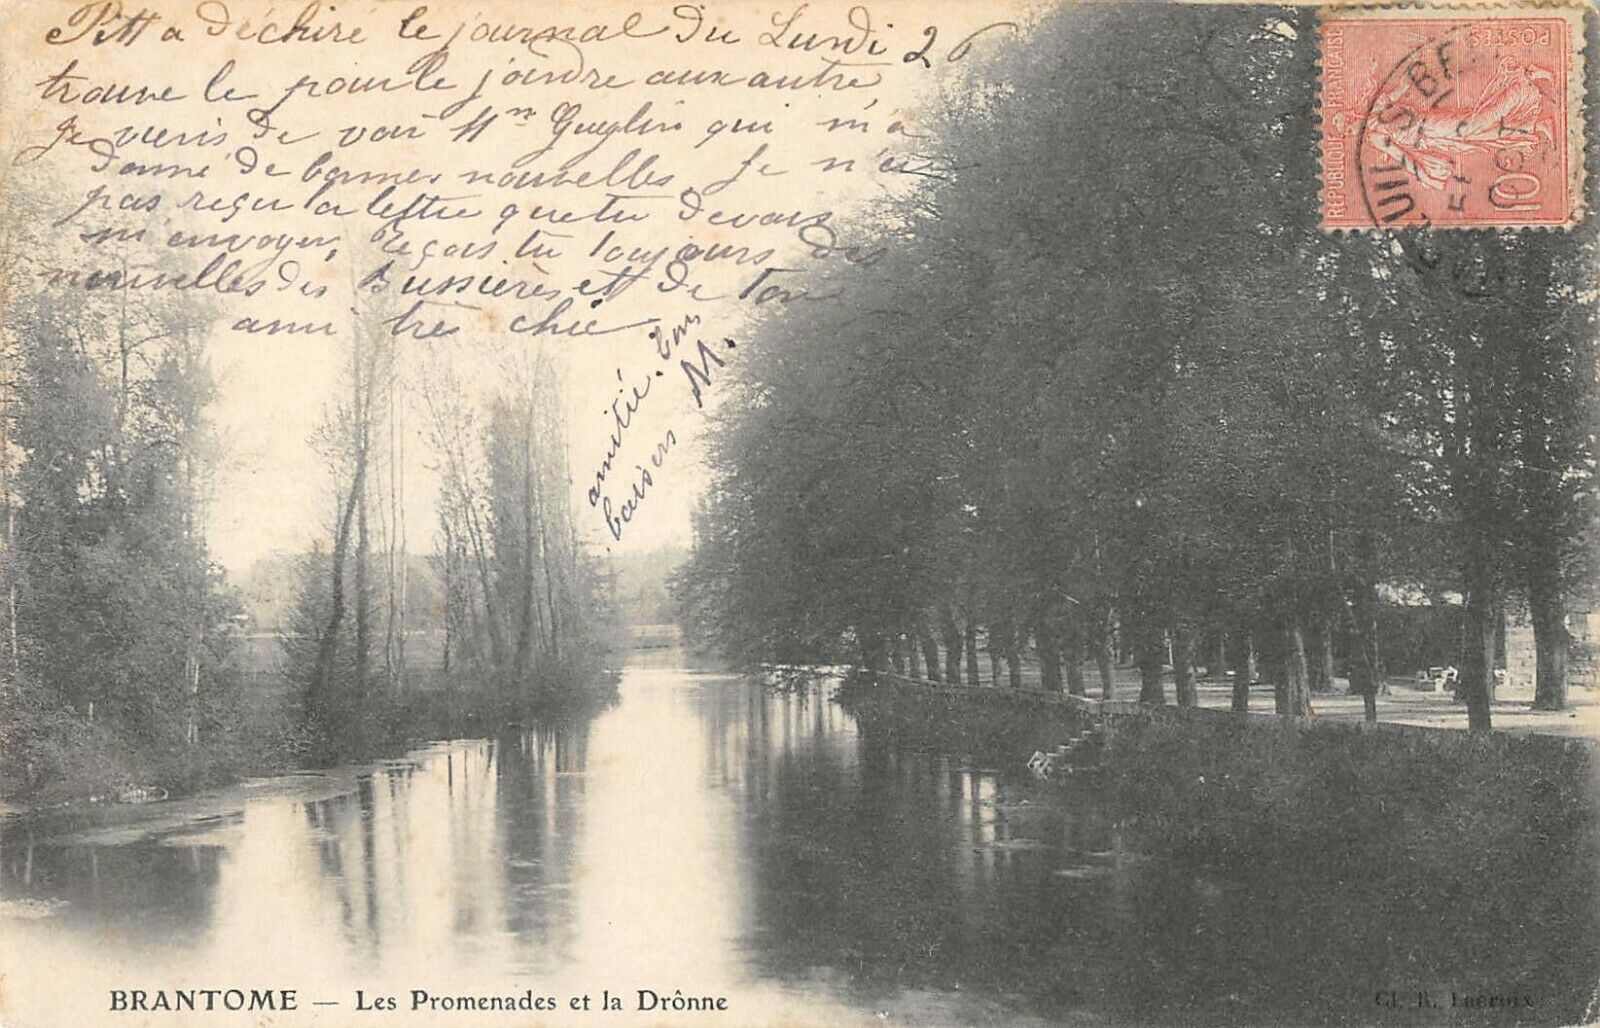 Pitt a déchiré le journal du Lundi 26
trouve le pour le joindre aux autre
Je viens de voir Mn qui m'a
donné de bonnes nouvelles Je n'ai
pas reçu la lettre que tu devais
m'envoyer, reçois tu toujours des
nouvelles des Bussières et de ton
ami très chic
amitié. bons
baisers M.
REPUBLIQUE FRANÇAISE
POSTES
10
BRANTOME — Les Promenades et la Drônne
Cl. R. Lacroix